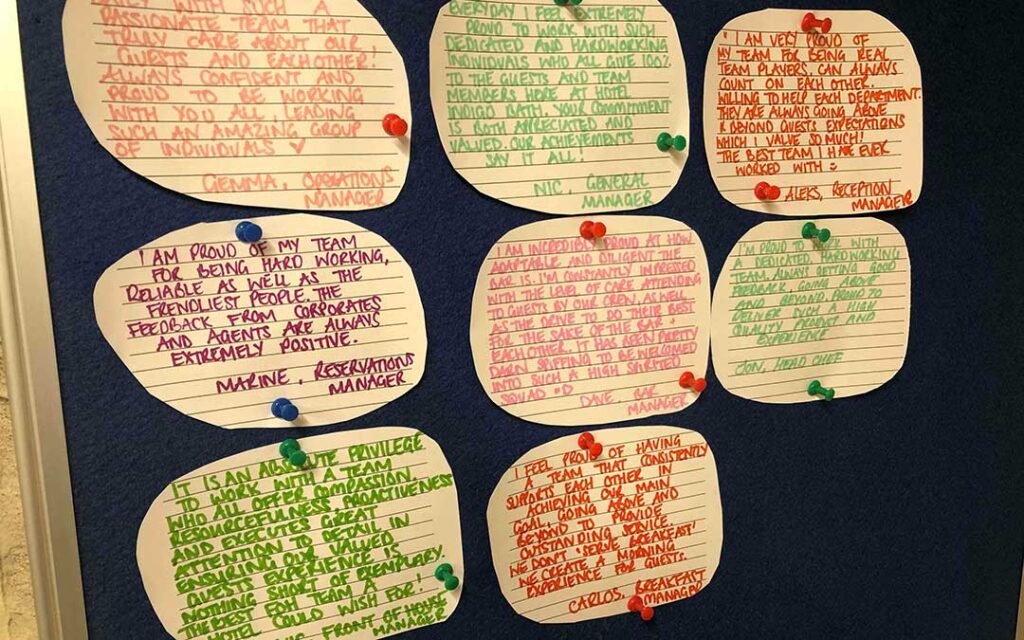 WITH SUCH A
PASSIONATE TEAM THAT
TRULY CARE ABOUT OUR
GUESTS AND EACHOTHER!
ALWAYS CONFIDENT AND
PROUD TO BE WORKING
WITH YOU ALL, LEADING
SUCH AN AMAZING GROUP
OF INDIVIDUALS ♡
GEMMA, OPERATIONS
MANAGER
EVERYDAY I FEEL EXTREMELY
PROUD TO WORK WITH SUCH
DEDICATED AND HARDWORKING
INDIVIDUALS WHO ALL GIVE 100%
TO THE GUESTS AND TEAM
MEMBERS HERE AT HOTEL
INDIGO BATH. YOUR COMMITMENT
IS BOTH APPRECIATED AND
VALUED. OUR ACHIEVEMENTS
SAY IT ALL!
NIC, GENERAL
MANAGER
" I AM VERY PROUD OF
MY TEAM FOR BEING REAL
TEAM PLAYERS. CAN ALWAYS
COUNT ON EACH OTHER.
WILLING TO HELP EACH DEPARTMENT.
THEY ARE ALWAYS GOING ABOVE
& BEYOND GUESTS EXPECTATIONS
WHICH I VALUE SO MUCH!
THE BEST TEAM I HAVE EVER
WORKED WITH :)
ALEKS, RECEPTION
MANAGER
I AM PROUD OF MY TEAM
FOR BEING HARD WORKING,
RELIABLE AS WELL AS THE
FRENDLIEST PEOPLE. THE
FEEDBACK FROM CORPORATES
AND AGENTS ARE ALWAYS
EXTREMELY POSITIVE.
MARINE, RESERVATIONS
MANAGER
I AM INCREDIBLY PROUD AT HOW
ADAPTABLE AND DILIGENT THE
BAR IS. I'M CONSTANTLY IMPRESSED
WITH THE LEVEL OF CARE ATTENDING
TO GUESTS BY OUR CREW, AS WELL
AS THE DRIVE TO DO THEIR BEST
FOR THE SAKE OF THE BAR +
EACH OTHER. IT HAS BEEN PARTY
DARN SPIFFING TO BE WELCOMED
INTO SUCH A HIGH SPIRITED
SQUAD :D
DAVE, BAR
MANAGER
I'M PROUD TO WORK WITH
A DEDICATED, HARD WORKING
TEAM. ALWAYS GETTING GOOD
FEEDBACK, GOING ABOVE
AND BEYOND. PROUD TO
DELIVER SUCH A HIGH
QUALITY PRODUCT AND
EXPERIENCE
JON, HEAD CHEF
IT IS AN ABSOLUTE PRIVILEGE
TO WORK WITH A TEAM
WHO ALL OFFER COMPASSION
RESOURCEFULNESS, PROACTIVENESS
AND EXECUTES GREAT
ATTENTION TO DETAIL IN
ENSURING OUR VALUED
GUESTS EXPERIENCE IS
NOTHING SHORT OF EXEMPLARY.
THE BEST FOH TEAM A
HOTEL COULD WISH FOR!
FRONT OF HOUSE
MANAGER
I FEEL PROUD OF HAVING
A TEAM THAT CONSISTENTLY
SUPPORTS EACH OTHER IN
ACHIEVING OUR MAIN
GOAL, GOING ABOVE AND
BEYOND TO PROVIDE
OUTSTANDING SERVICE.
WE DON'T 'SERVE BREAKFAST'
WE CREATE A MORNING
EXPERIENCE FOR GUESTS.
CARLOS, BREAKFAST
MANAGER